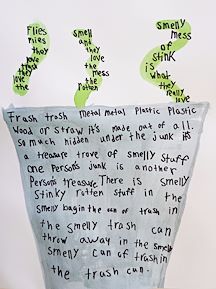 Flies
flies
they
love
trash
they
love
the
smell
and
they
love
the
mess
the
rotten
smelly
mess
of
stink
is
what
they
really
love
Trash trash Metal metal Plastic Plastic
Wood or straw it's made out of all.
so much hidden under the junk it's
a treasure trove of smelly stuff
one persons junk is another
Persons treasure There is smelly
stinky rotten stuff in the
smelly bag in the can of trash in
the smelly trash can
throw away in the smelly
smelly can of trash in
the trash can.